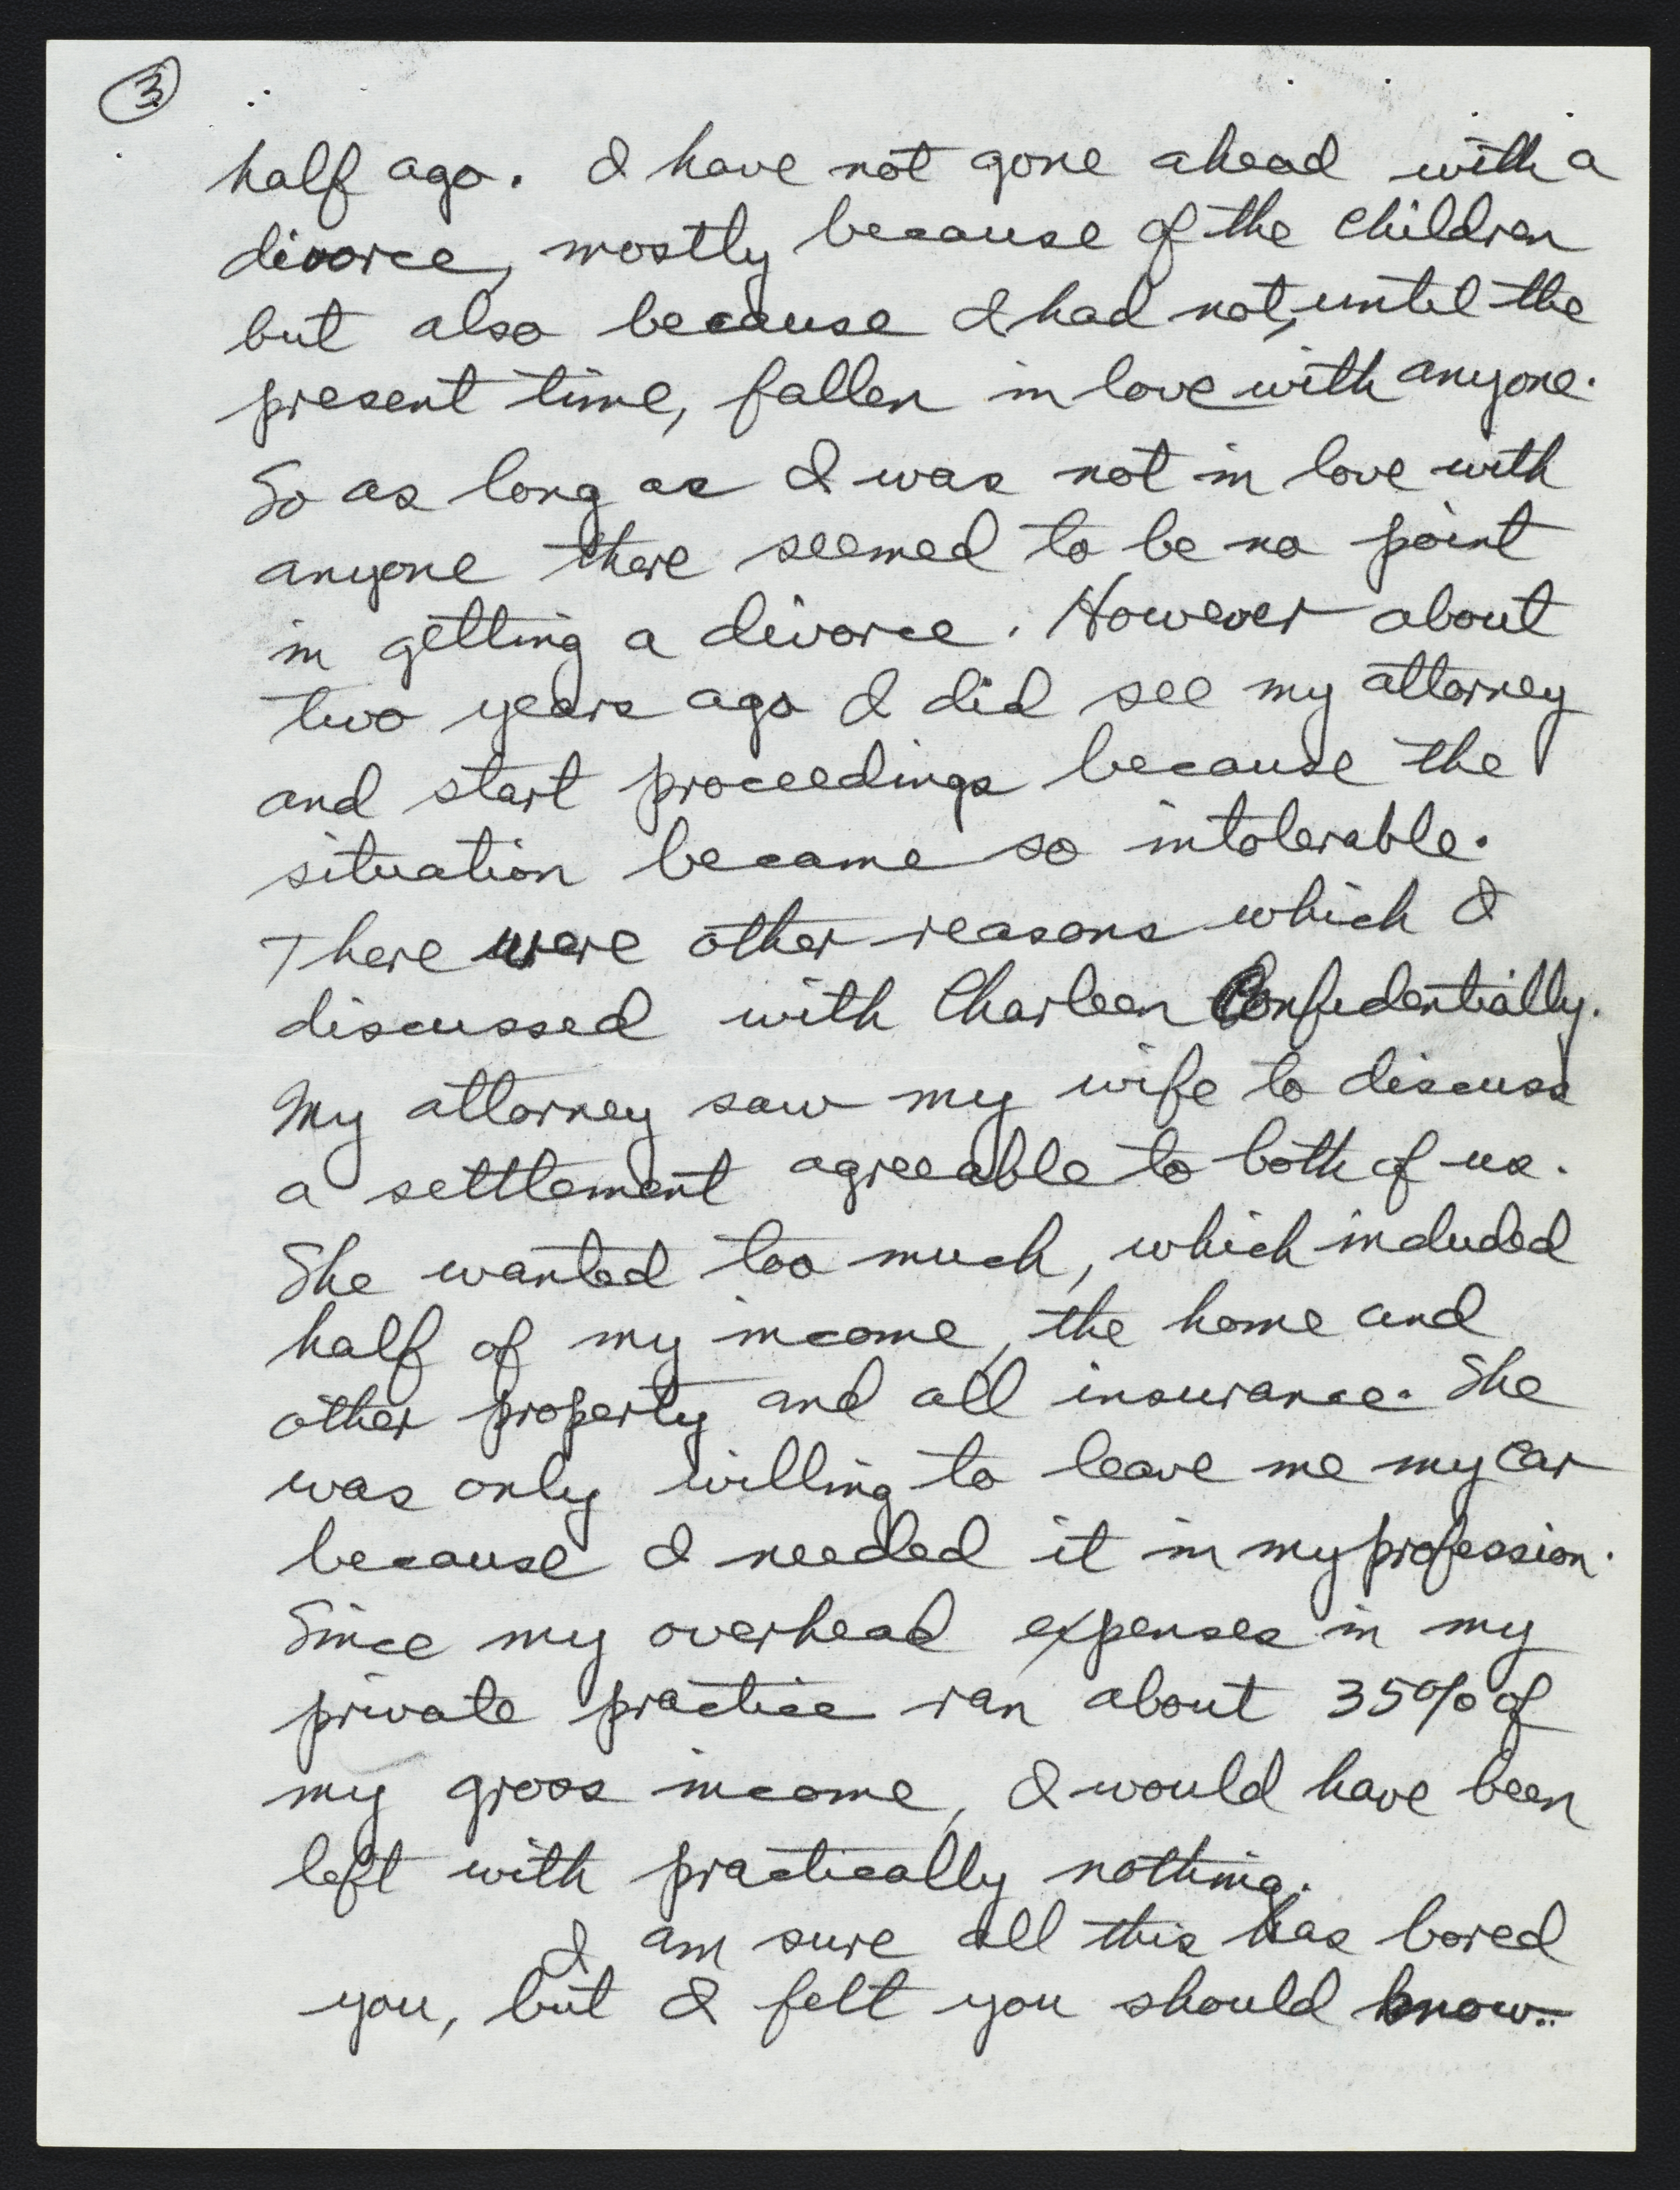 3
half ago. I have not gone ahead with a
divorce, mostly because of the children
but also because I had not, until the
present time, fallen in love with anyone.
So as long as I was not in love with
anyone there seemed to be no point
in getting a divorce. However about
two years ago I did see my attorney
and start proceedings because the
situation became so intolerable.
There were other reasons which I
discussed with Charleen Confidentially.
My attorney saw my wife to discuss
a settlement agreeable to both of us.
She wanted too much, which included
half of my income, the home and
other property and all insurance. She
was only willing to leave me my car
because I needed it in my profession.
Since my overhead expenses in my
private practice ran about 35% of
my gross income, I would have been
left with practically nothing.
I am sure all this has bored
you, but I felt you should know..